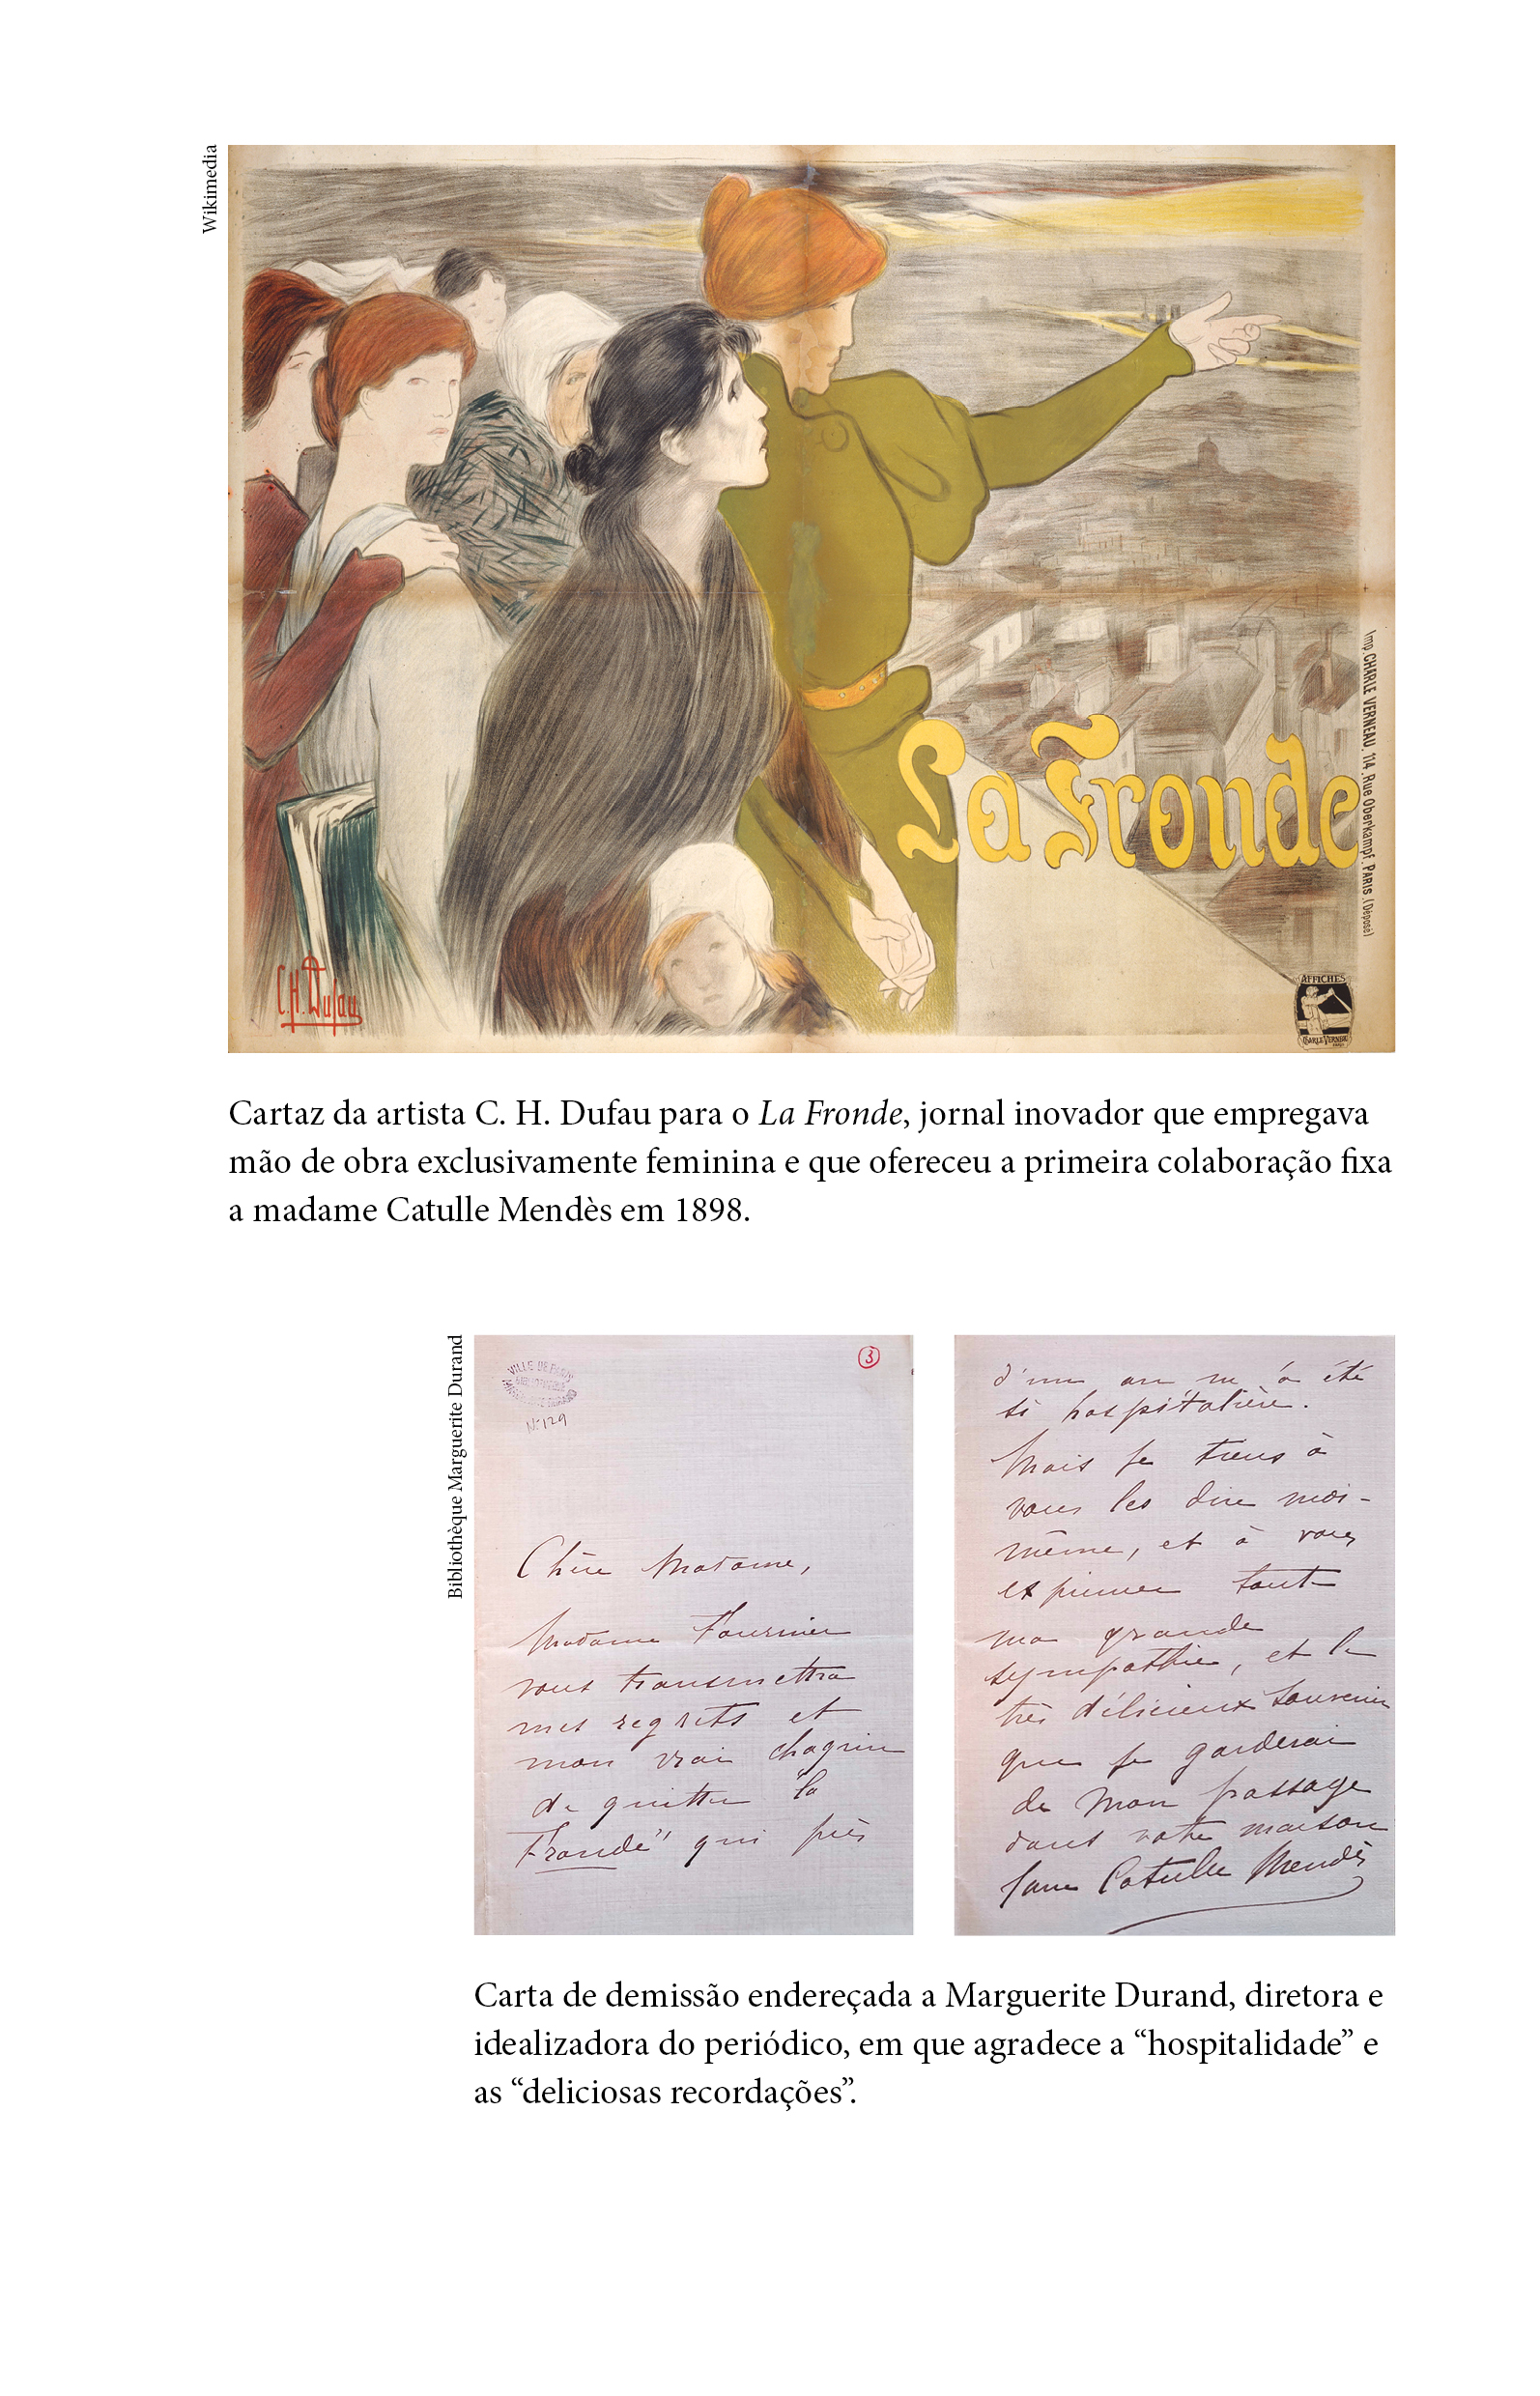 Wikimedia
La Fronde
Imp. CHARLE VERNEAU, 114, Rue Oberkampf, PARIS. (Déposé)
C.H. Dufau
AFFICHES
CHARLE VERNEAU
PARIS
Cartaz da artista C. H. Dufau para o La Fronde, jornal inovador que empregava
mão de obra exclusivamente feminina e que ofereceu a primeira colaboração fixa
a madame Catulle Mendès em 1898.
Bibliothèque Marguerite Durand
VILLE DE PARIS
BIBLIOTHÈQUE
MARGUERITE DURAND
N° 129
3
Chère Madame,
Madame Fournier
vous transmettra
mes regrets et
mon vrai chagrin
de quitter "la
Fronde" qui près
d'un an m'a été
si hospitalière.
Mais je tiens à
vous les dire moi-
même, et à vous
exprimer toute
ma grande
sympathie, et le
très délicieux souvenir
que je garderai
de mon passage
dans votre maison
Jane Catulle Mendès
Carta de demissão endereçada a Marguerite Durand, diretora e
idealizadora do periódico, em que agradece a “hospitalidade” e
as “deliciosas recordações”.